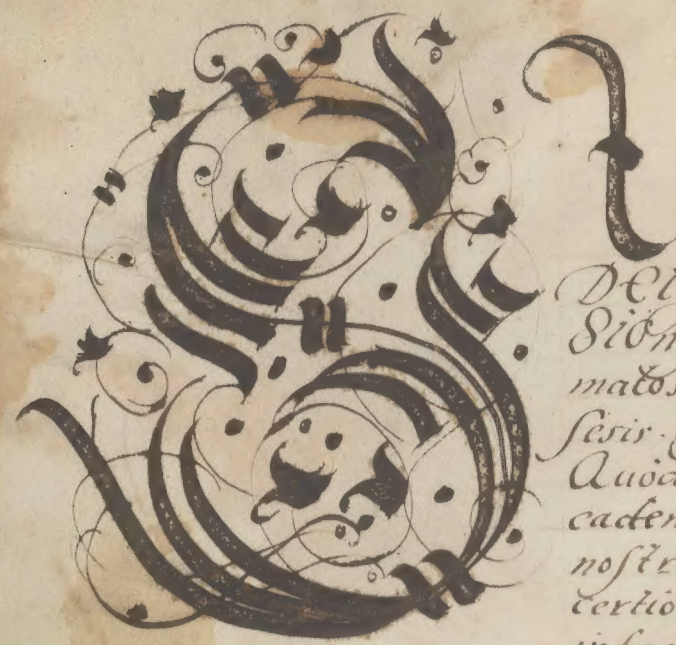 S I
DEI
Sion
matos
sesis.
Quod
caden
nostr
certio